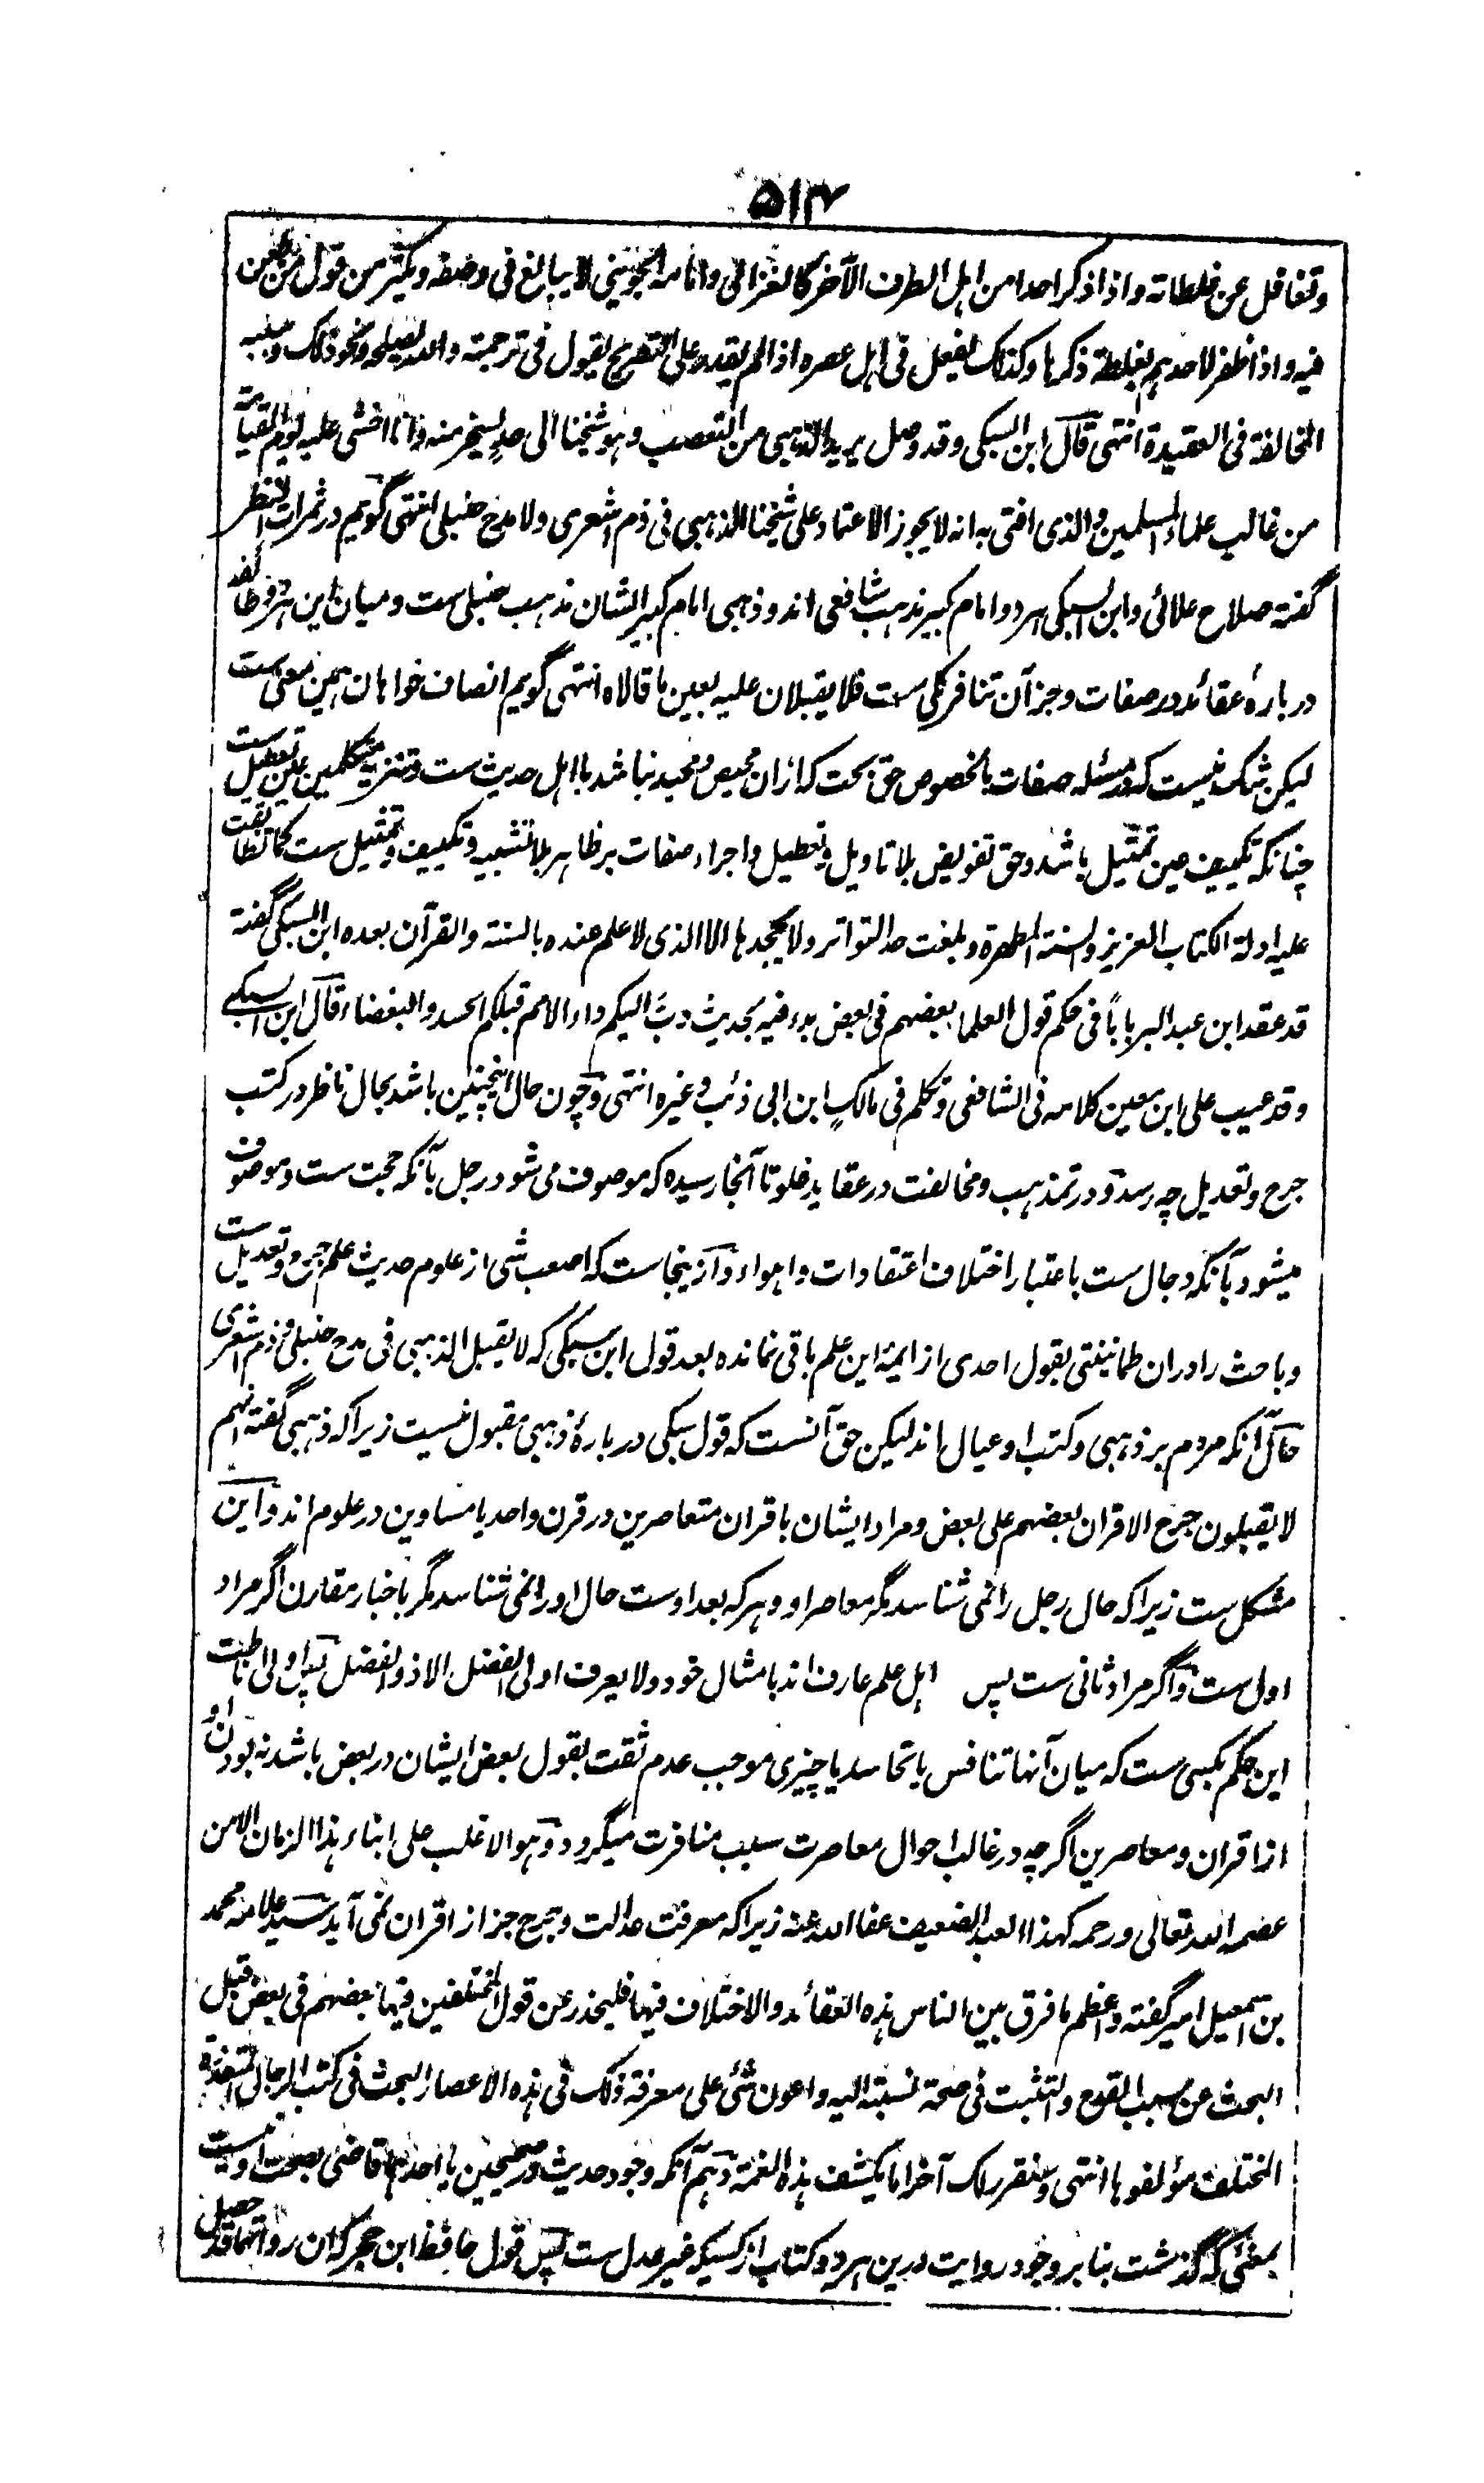 ۵۱۴
وتغافل عن غلطاته واذا ذكر احدا من اهل الطرف الآخر كالغزالى وامامه الجوينى لا يبالغ فى وصفه ويكثر من قول من طعن
فيه واذا ظفر لاحدهم بغلطة ذكرها وكذلك يفعل فى اهل عصره اذا لم يقدر على التصريح يقول فى ترجمته والله يصلحه ونحو ذلك وسببه
المخالفة فى العقيدة انتهى قال ابن السبكى وقد وصل يريد الذهبى من التعصب وهو شيخنا الى حد يسخر منه وانا اخشى عليه يوم القيامة
من غالب علماء المسلمين والذى افتى به انه لا يجوز الاعتماد على شيخنا الذهبى فى ذم اشعرى ولا مدح حنبلى انتهى گويم در ثمرات النظر
گفته صلاح علائى وابن السبكى هر دو امام كبير مذهب شافعى اند وذهبى امام كبير الشان مذهب حنبلى ست وميان اين هر دو طائفه
دربارهٔ عقائد در صفات وجز آن تنافر كلى ست فلا يقبلان عليه بعين ما قالاه انتهى گويم انصاف خواهان همين معنى ست
ليكن شك نيست كه در مسئله صفات بالخصوص حق بحت كه ازان محيص ومحيد نباشد با اهل حديث ست وتنزيه متكلمين عين تعطيل ست
چنانكه تكييف عين تمثيل باشد وحق تفويض بلا تاويل وتعطيل واجراء صفات بر ظاهر بلا تشبيه وتكييف وتمثيل ست كما تطابقت
عليه ادلة الكتاب العزيز والسنة المطهرة وبلغت حد التواتر ولا يجحدها الا الذى لا علم عنده بالسنة والقرآن بعده ابن السبكى گفته
قد عقد ابن عبد البر باباً فى حكم قول العلما بعضهم فى بعض بدء فيه بحديث دبّ اليكم داء الامم قبلكم الحسد والبغضاء قال ابن السبكے
وقد عيب على ابن معين كلامه فى الشافعى وتكلم فى مالكٍ ابن ابى ذئب وغيره انتهى وچون حال اينچنين باشد بحال ناظر در كتب
جرح وتعديل چه رسد ودر تمذهب ومخالفت در عقايد غلو تا آنجا رسيده كه موصوف مى شود رجل بآنكه حجت ست وموصوف
ميشود بآنكه دجال ست باعتبار اختلاف اعتقادات واهواء وازينجاست كه اصعب شى از علوم حديث علم جرح وتعديل ست
وباحث را دران طمانينتى بقول احدى از ايمۂ اين علم باقى نمانده بعد قول ابن سبكى كه لا يقبل الذهبى فى مدح حنبلى وذم اشعرى
حال آنكه مردم بر ذهبى وكتب او عيال اند ليكن حق آنست كه قول سبكى دربارهٔ ذهبى مقبول نيست زيراكه ذهبى گفته انهم
لا يقبلون جرح الاقران بعضهم على بعض ومراد ايشان باقران متعاصرين در قرن واحد يا مساوين در علوم اند واين
مشكل ست زيراكه حال رجل را نمى شناسد مگر معاصر او وهركه بعد اوست حال او را نمى شناسد مگر باخبار مقارن اگر مراد
اول ست واگر مراد ثانى ست پس اهل علم عارف اند بامثال خود ولا يعرف اولى الفضل الا ذو الفضل پس اولى اناطت
اين حكم بكسى ست كه ميان آنها تنافس يا تحاسد يا چيزى موجب عدم ثقت بقول بعض ايشان در بعض باشد نه بودن او
از اقران ومعاصرين اگرچه در غالب احوال معاصرت سبب منافرت ميگردد وهو الاغلب على ابناء هذا الزمان الا من
عصمه الله تعالى ورحمه كهذا العبد الضعيف عفا الله عنه زيراكه معرفت عدالت وجرح جز از اقران نمى آيد سيد علامه محمد
بن اسمعيل امير گفته واعظم ما فرق بين الناس هذه العقائد والاختلاف فيها فليحذر عن قول المختلفين فيها بعضهم فى بعض قبل
البحث عن سبب القدح والتثبت فى صحة نسبته اليه واعون شئ على معرفة ذلك فى هذه الاعصار البحث فى كتب الرجال المتعددة
المختلف مؤلفوها انتهى وسنقرر لك آخرا ما يكشف هذه الغمة دهم آنكه وجود حديث در صحيحين يا احدهما قاضى بصحت اوست
بمعنئ كه گذشت بنا بر وجود روايت درين هر دو كتاب از كسيكه غير عدل ست پس قول حافظ ابن حجر كه ان رواتهما قد حصل